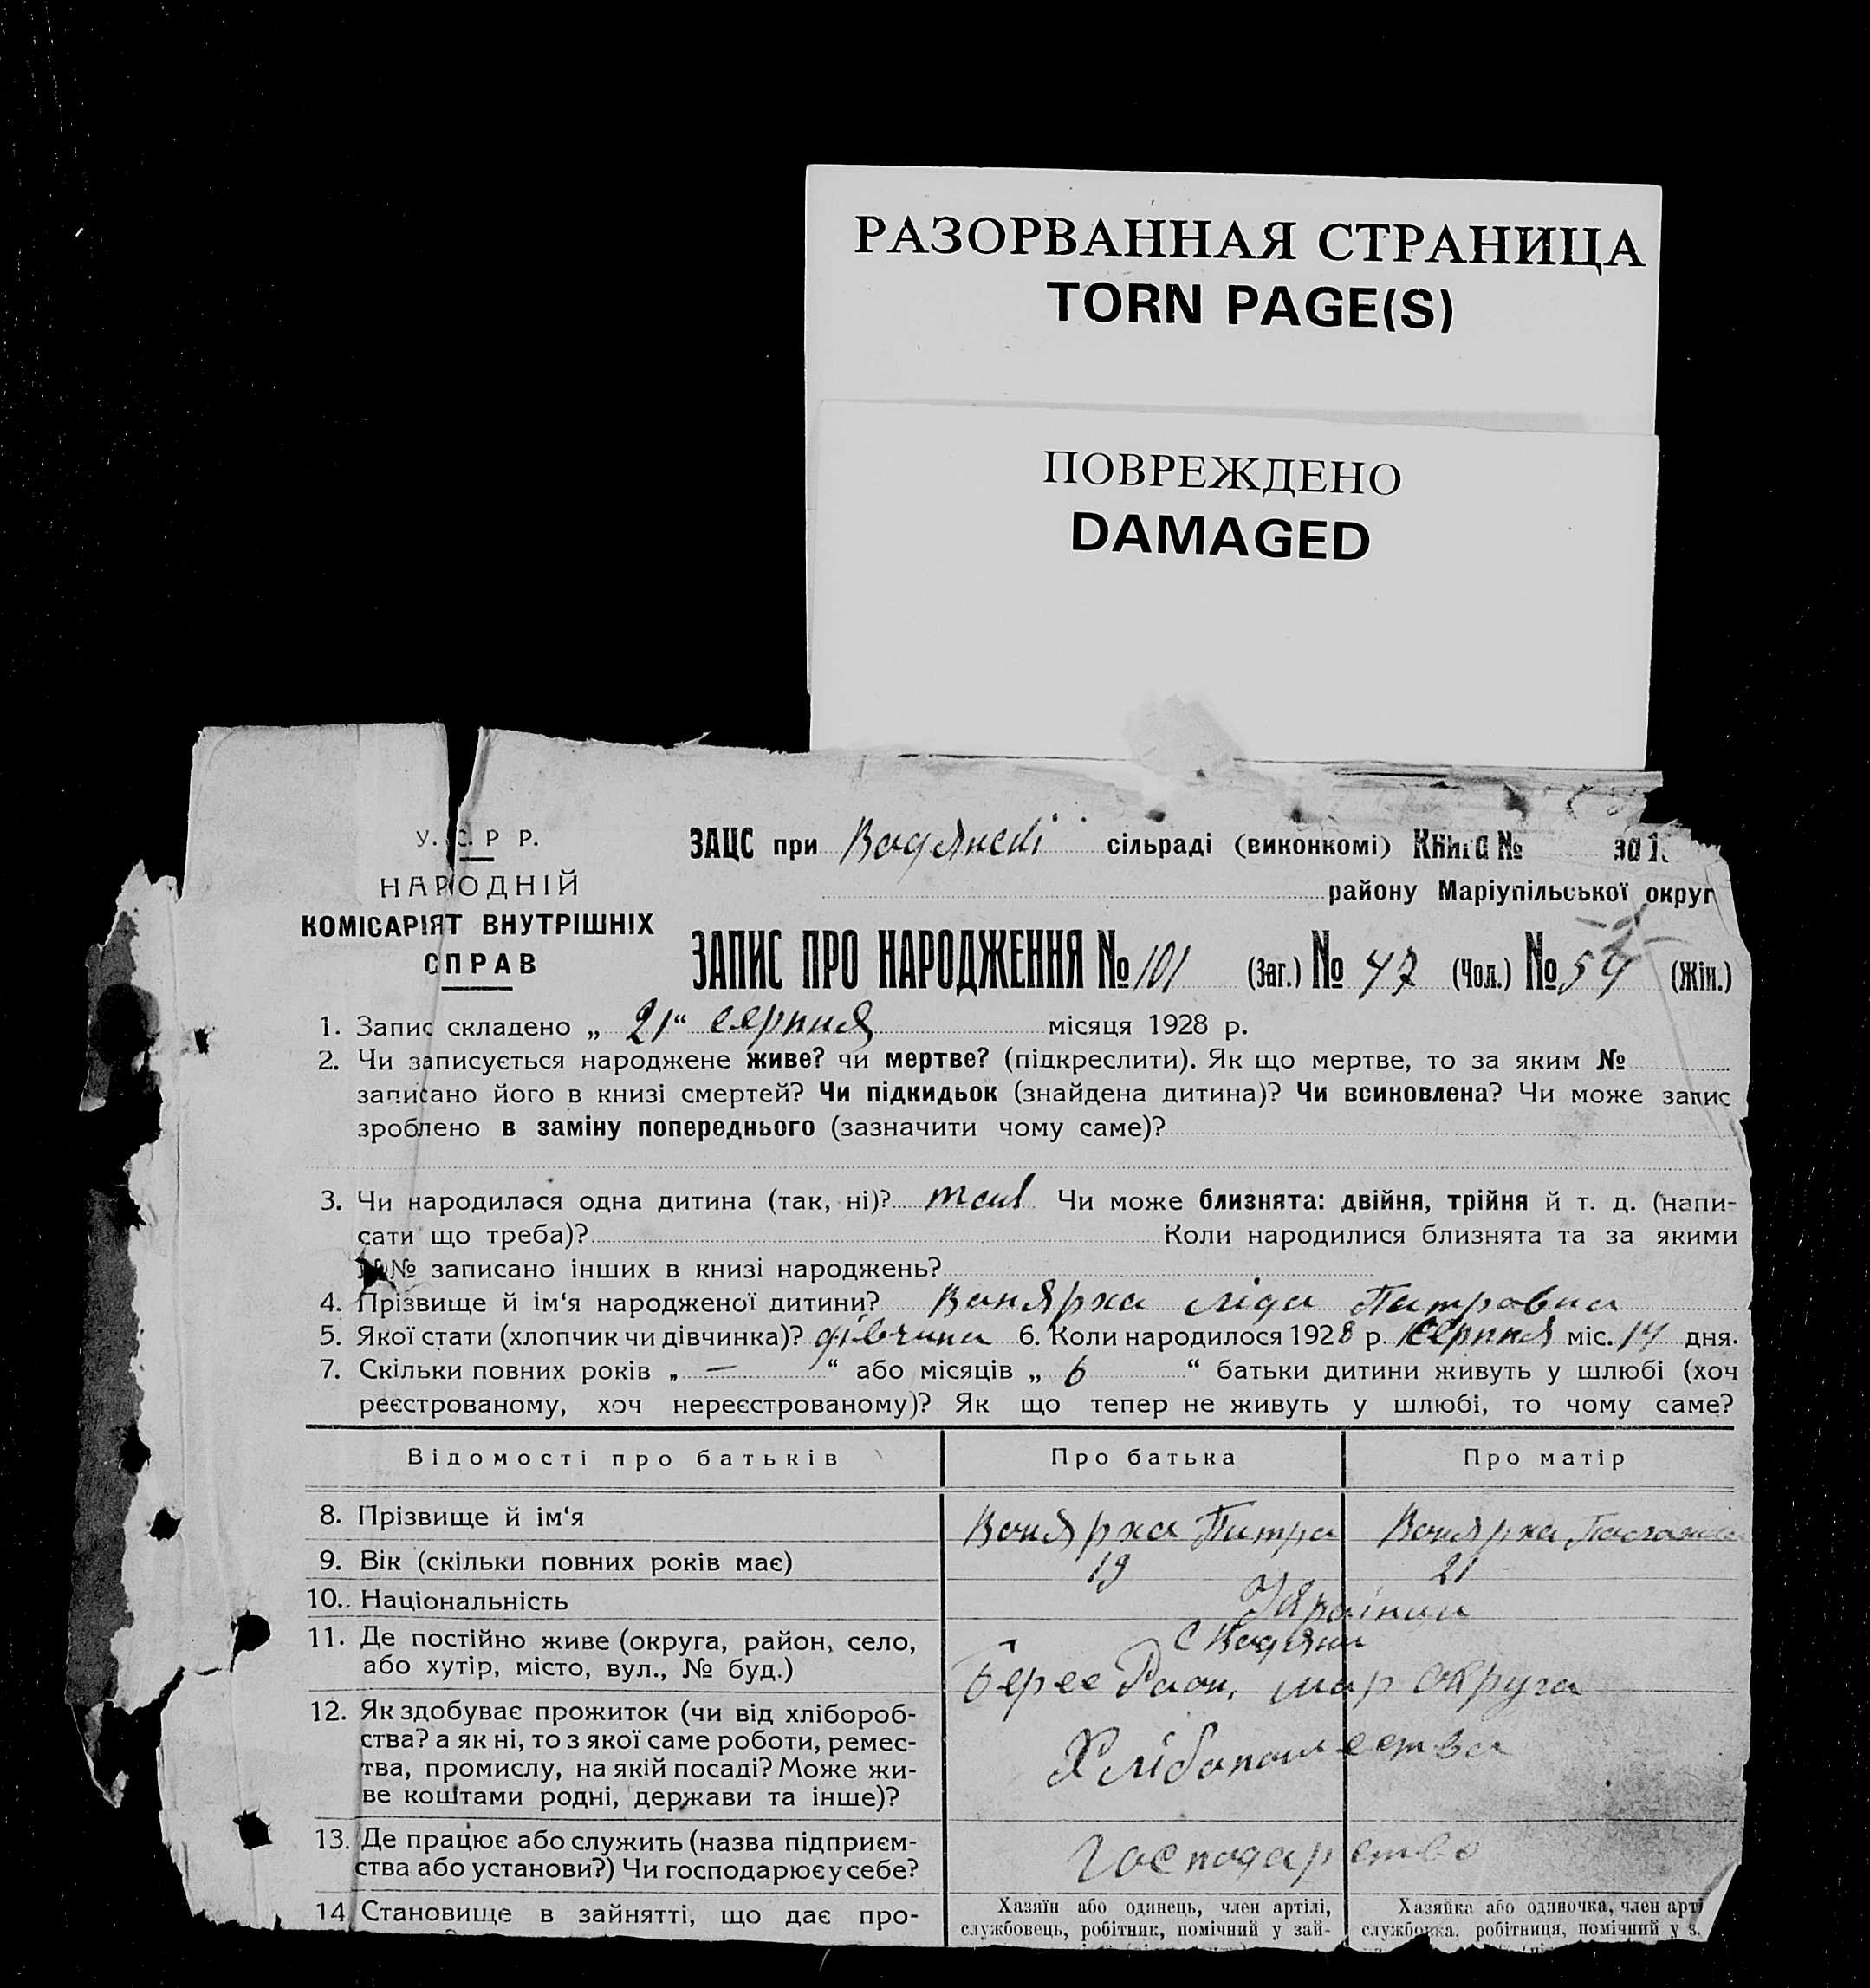 РАЗОРВАННАЯ СТРАНИЦА
TORN PAGE(S)
ПОВРЕЖДЕНО
DAMAGED
У. С. Р Р.
НАРОДНІЙ
КОМІСАРІЯТ ВНУТРІШНІХ
СПРАВ
ЗАЦС при Водянскі сільраді (виконкомі) Книга № за 1
району Маріупільської округ
ЗАПИС ПРО НАРОДЖЕННЯ № 101 (Заг.) № 47 (Чол.) № 54 (Жін.)
1. Запис складено „ 21“ серпня місяця 1928 р.
2. Чи записується народжене живе? чи мертве? (підкреслити). Як що мертве, то за яким №
записано його в книзі смертей? Чи підкидьок (знайдена дитина)? Чи всиновлена? Чи може запис
зроблено в заміну попереднього (зазначити чому саме)?
3. Чи народилася одна дитина (так, ні)? так Чи може близнята: двійня, трійня й т. д. (напи-
сати що треба)? Коли народилися близнята та за якими
№№ записано інших в книзі народжень?
4. Прізвище й ім‘я народженої дитини? Ванярха Ліда Петровна
5. Якої стати (хлопчик чи дівчинка)? дівчина 6. Коли народилося 1928 р. серпня міс. 14 дня.
7. Скільки повних років „ — “ або місяців „ 6 “ батьки дитини живуть у шлюбі (хоч
реєстрованому, хоч нереєстрованому)? Як що тепер не живуть у шлюбі, то чому саме?
Відомості про батьків Про батька Про матір
8. Прізвище й ім‘я Ванярха Петро Ванярха
9. Вік (скільки повних років має) 19 21
10. Національність Українці
11. Де постійно живе (округа, район, село, с Водяни
або хутір, місто, вул., № буд.) Берес Раон, мар округа
12. Як здобуває прожиток (чи від хлібороб-
ства? а як ні, то з якої саме роботи, ремес-
тва, промислу, на якій посаді? Може жи- Хлібопашества
ве коштами родні, держави та інше)?
13. Де працює або служить (назва підприєм- господарство
ства або установи?) Чи господарює у себе?
14 Становище в зайнятті, що дає про- Хазяїн або одинець, член артілі, Хазяйка або одиночка, член арті
службовець, робітник, помічний у зай- службовка. робітниця, помічний у з.